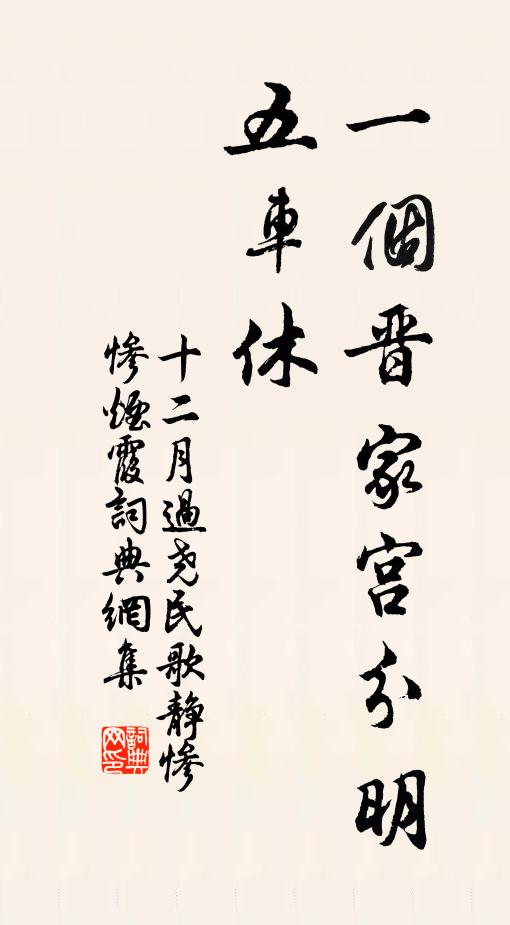 一個晋家宫分明
五車休
十二月過尧民歌靜慘
慘煙霞詞典網集
詞典网印